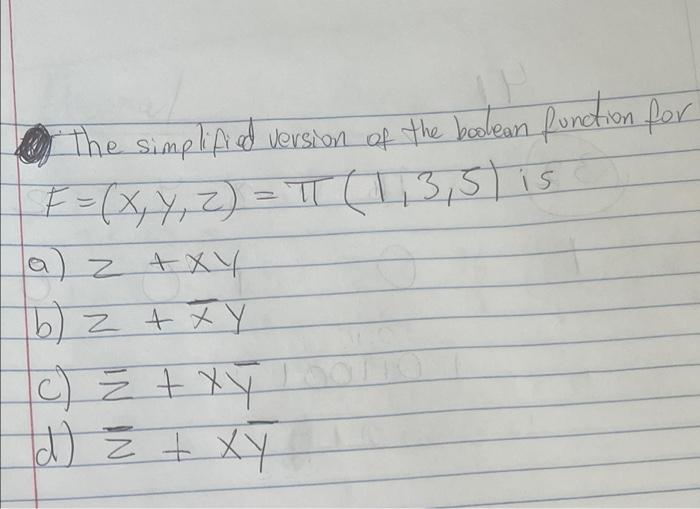 The simplified version of the boolean function for
F=(x,y,z) = π(1,3,5) is
a) z + xy
b) z + x̅y
c) z̅ + xy̅
d) z̅ + xy̅